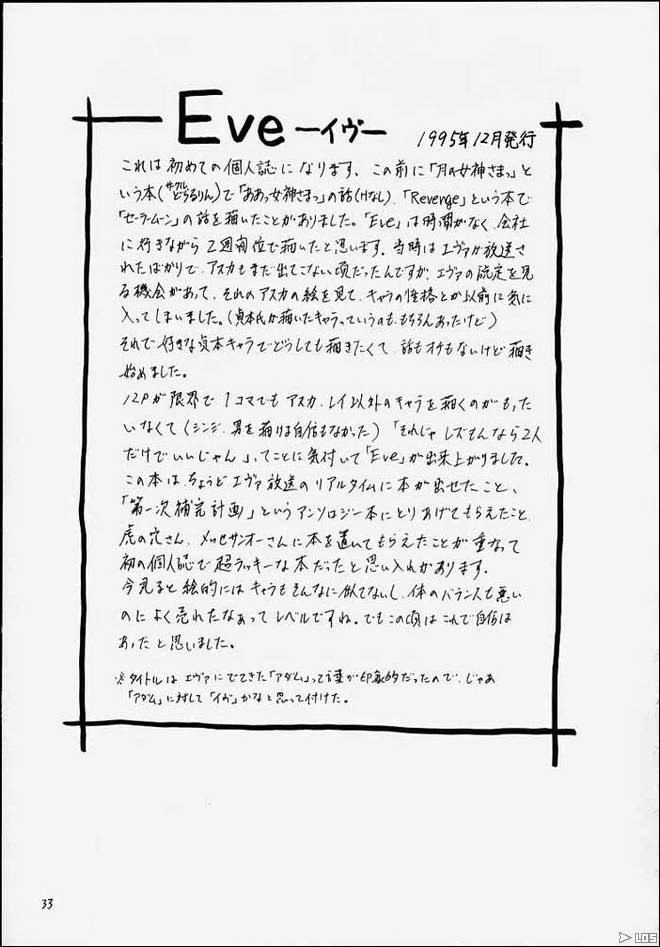 Eve ーイヴー 1995年12月発行
これは初めての個人誌になります、この前に「月の女神さまっ」と
いう本(サークルどらるりん)で「ああっ女神さまっ」の話(Hなし)、「Revenge」という本で
「セーラームーン」の話を描いたことがありました。「Eve」は時間がなく、会社
に行きながら2週間位で描いたと思います。当時はエヴァが放送さ
れたばかりで、アスカもまだ出てこない頃だったんですが、エヴァの設定を見
る機会があって、それのアスカの絵を見て、キャラの性格とか以前に気に
入ってしまいました。(貞本氏が描いたキャラっていうのも、もちろんあったけど)
それで好きな貞本キャラでどうしても描きたくて、話もオチもないけど描き
始めました。
12Pが限界で1コマでもアスカ、レイ以外のキャラを描くのがもった
いなくて(シンジ、男を描ける自信もなかった)「それじゃレズもんなら2人
だけでいいじゃん」ってことに気付いて「Eve」が出来上がりました。
この本は、ちょうどエヴァ放送のリアルタイムに本が出せたこと、
「第一次補完計画」というアンソロジー本にとりあげてもらえたこと、
虎の穴さん、メッセサンオーさんに本を置いてもらえたことが重なって
初の個人誌で超ラッキーな本だったと思い入れがあります。
今見ると絵的にはキャラもそんなに似てないし、体のバランスも悪い
のによく売れたなぁってレベルですね。でもこの頃はこれで自信は
あったと思いました。
※タイトルはエヴァにでてきた「アダム」って言葉が印象的だったので、じゃあ
「アダム」に対して「イヴ」かなと思って付けた。
33
LOS